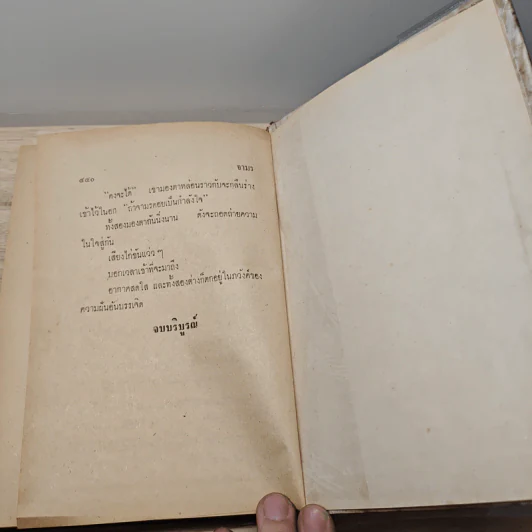 ๔๕๐ จามร
"คงจะได้" เขามองตาหล่อนราวกับจะกลืนร่าง
เข้าไว้ในอก "ถ้าจามรคอยเป็นกำลังใจ"
ทั้งสองมองตากันนิ่งนาน ดังจะถอดถ่ายความ
ในใจสู่กัน
เสียงไก่ขันแว่ว ๆ
บอกเวลาเช้าที่จะมาถึง
อากาศสดใส และทั้งสองต่างก็ตกอยู่ในภวังค์ของ
ความฝันอันบรรเจิด
จบบริบูรณ์